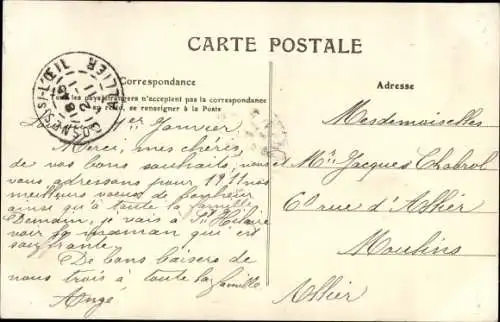 CARTE POSTALE
Correspondance
Tous les pays étrangers n'acceptent pas la correspondance
au recto, se renseigner à la Poste
Adresse
COSNE-SUR-L'ŒIL ALLIER
1er Janvier
Merci, mes chéres,
de vos bons souhaits, nous
vous adressons pour 1911 nos
meilleurs voeux de bonheur
ainsi qu'à toute la famille
Demain, je vais à St Hilaire
voir maman qui est
souffrante.
De bons baisers de
nous trois à toute la famille
Ange
Mesdemoiselles
et Mr Jacques Chabrol
6 rue d'Allier
Moulins
Allier